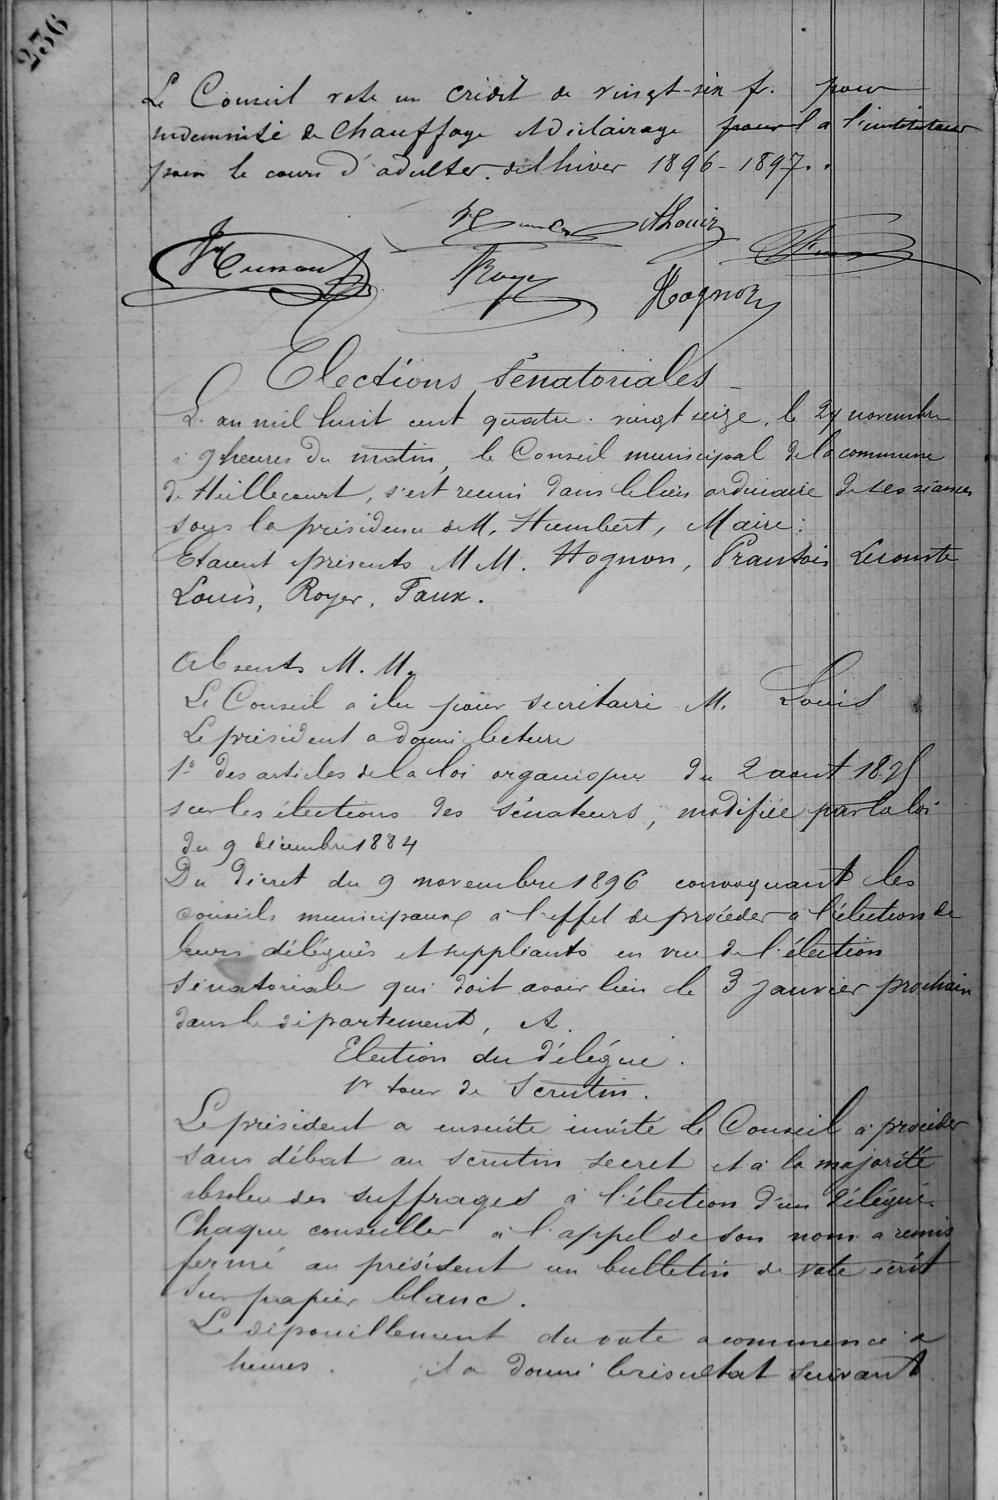 236
Le Conseil vote un crédit de vingt-six fr. pour
indemnité de chauffage et d'éclairage pour l a l'instituteur
pour le cours d'adultes de l'hiver 1896-1897.
ALouis
Royer
Hognon
Elections Sénatoriales
L'an mil huit cent quatre-vingt seize, le 29 novembre
à 9 heures du matin, le Conseil municipal de la commune
de Huillecourt, s'est réuni dans le lieu ordinaire de ses séances
sous la présidence de M. Humbert, Maire:
Etaient présents M M. Hognon, François Lecomte
Louis, Royer, Faux.
Absents M. M.
Le Conseil a élu pour secrétaire M. Louis
Le président a donné lecture
1º des articles de la loi organique du 2 aout 1875
sur les élections des sénateurs, modifiée par la loi
du 9 décembre 1884
Du décret du 9 novembre 1896 convoquant les
conseils municipaux à l'effet de procéder à l'élection de
leurs délégués et suppléants en vue de l'élection
sénatoriale qui doit avoir lieu le 3 janvier prochain
dans le département, et.
Election du délégué.
1r tour de scrutin.
Le président a ensuite invité le Conseil à procéder
sans débat au scrutin secret et à la majorité
absolue des suffrages à l'élection d'un délégué.
Chaque conseiller à l'appel de son nom a remis
fermé au président un bulletin de vote écrit
sur papier blanc.
Le dépouillement du vote a commencé à
heures. il a donné le résultat suivant